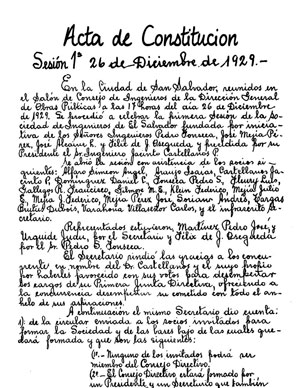 Acta de Constitucion
Sesión 1ª 26 de Diciembre de 1929.-
En la Ciudad de San Salvador, reunidos en
el Salón de Consejo de Ingenieros de la Dirección General
de Obras Públicas a las 17 horas del día 26 de Diciembre
de 1929. Se procedió a celebrar la primera Sesión de la So-
ciedad de Ingenieros de El Salvador fundada por inicia-
tiva de los Señores Ingenieros Pedro Fonseca, José Mejía Pé-
rez, José Alcaine h. y Félix de J. Osegueda y presidida por su
Presidente el Sr. Ingeniero Jacinto Castellanos P.
Se abrió la sesión con asistencia de los socios si-
guientes: Alfaro Simeón Angel, Araujo Isaias, Castellanos Ja-
cinto P, Domínguez Daniel C, Fonseca Pedro S,
Gallegos R. Francisco, M. E, Klein Federico, Mejía Julio
E, Mejía J. Federico, Mejía Pérez José, Soriano Andrés, Vargas
Dubón, Varahona Villaseñor Carlos, y el infrascrito Se-
cretario.
Representados estuvieron, Martínez Pedro José, y
Urquide Juan, por el Secretario y Félix de J. Osegueda
por el Sr. Pedro S. Fonseca.
El Secretario rindió las gracias a los concu-
rrentes en nombre del Dr. Castellanos y el suyo propio
por haberles favorecido con sus votos para desempeñar
los cargos de su Primera Junta Directiva, ofreciendo a
la concurrencia desempeñar su cometido con todo el an-
helo de sus aspiraciones.
A continuación el mismo Secretario dio cuenta:
1º: de la circular enviada a los socios invitados para
formar la Sociedad y de las bases bajo de las cuales que-
dará formada y que son las siguientes:
(1º.- Ninguno de los invitados podrá ser
miembro del Consejo Directivo.
(2º.- El Consejo Directivo estará formado por
un Presidente, y un Secretario que también